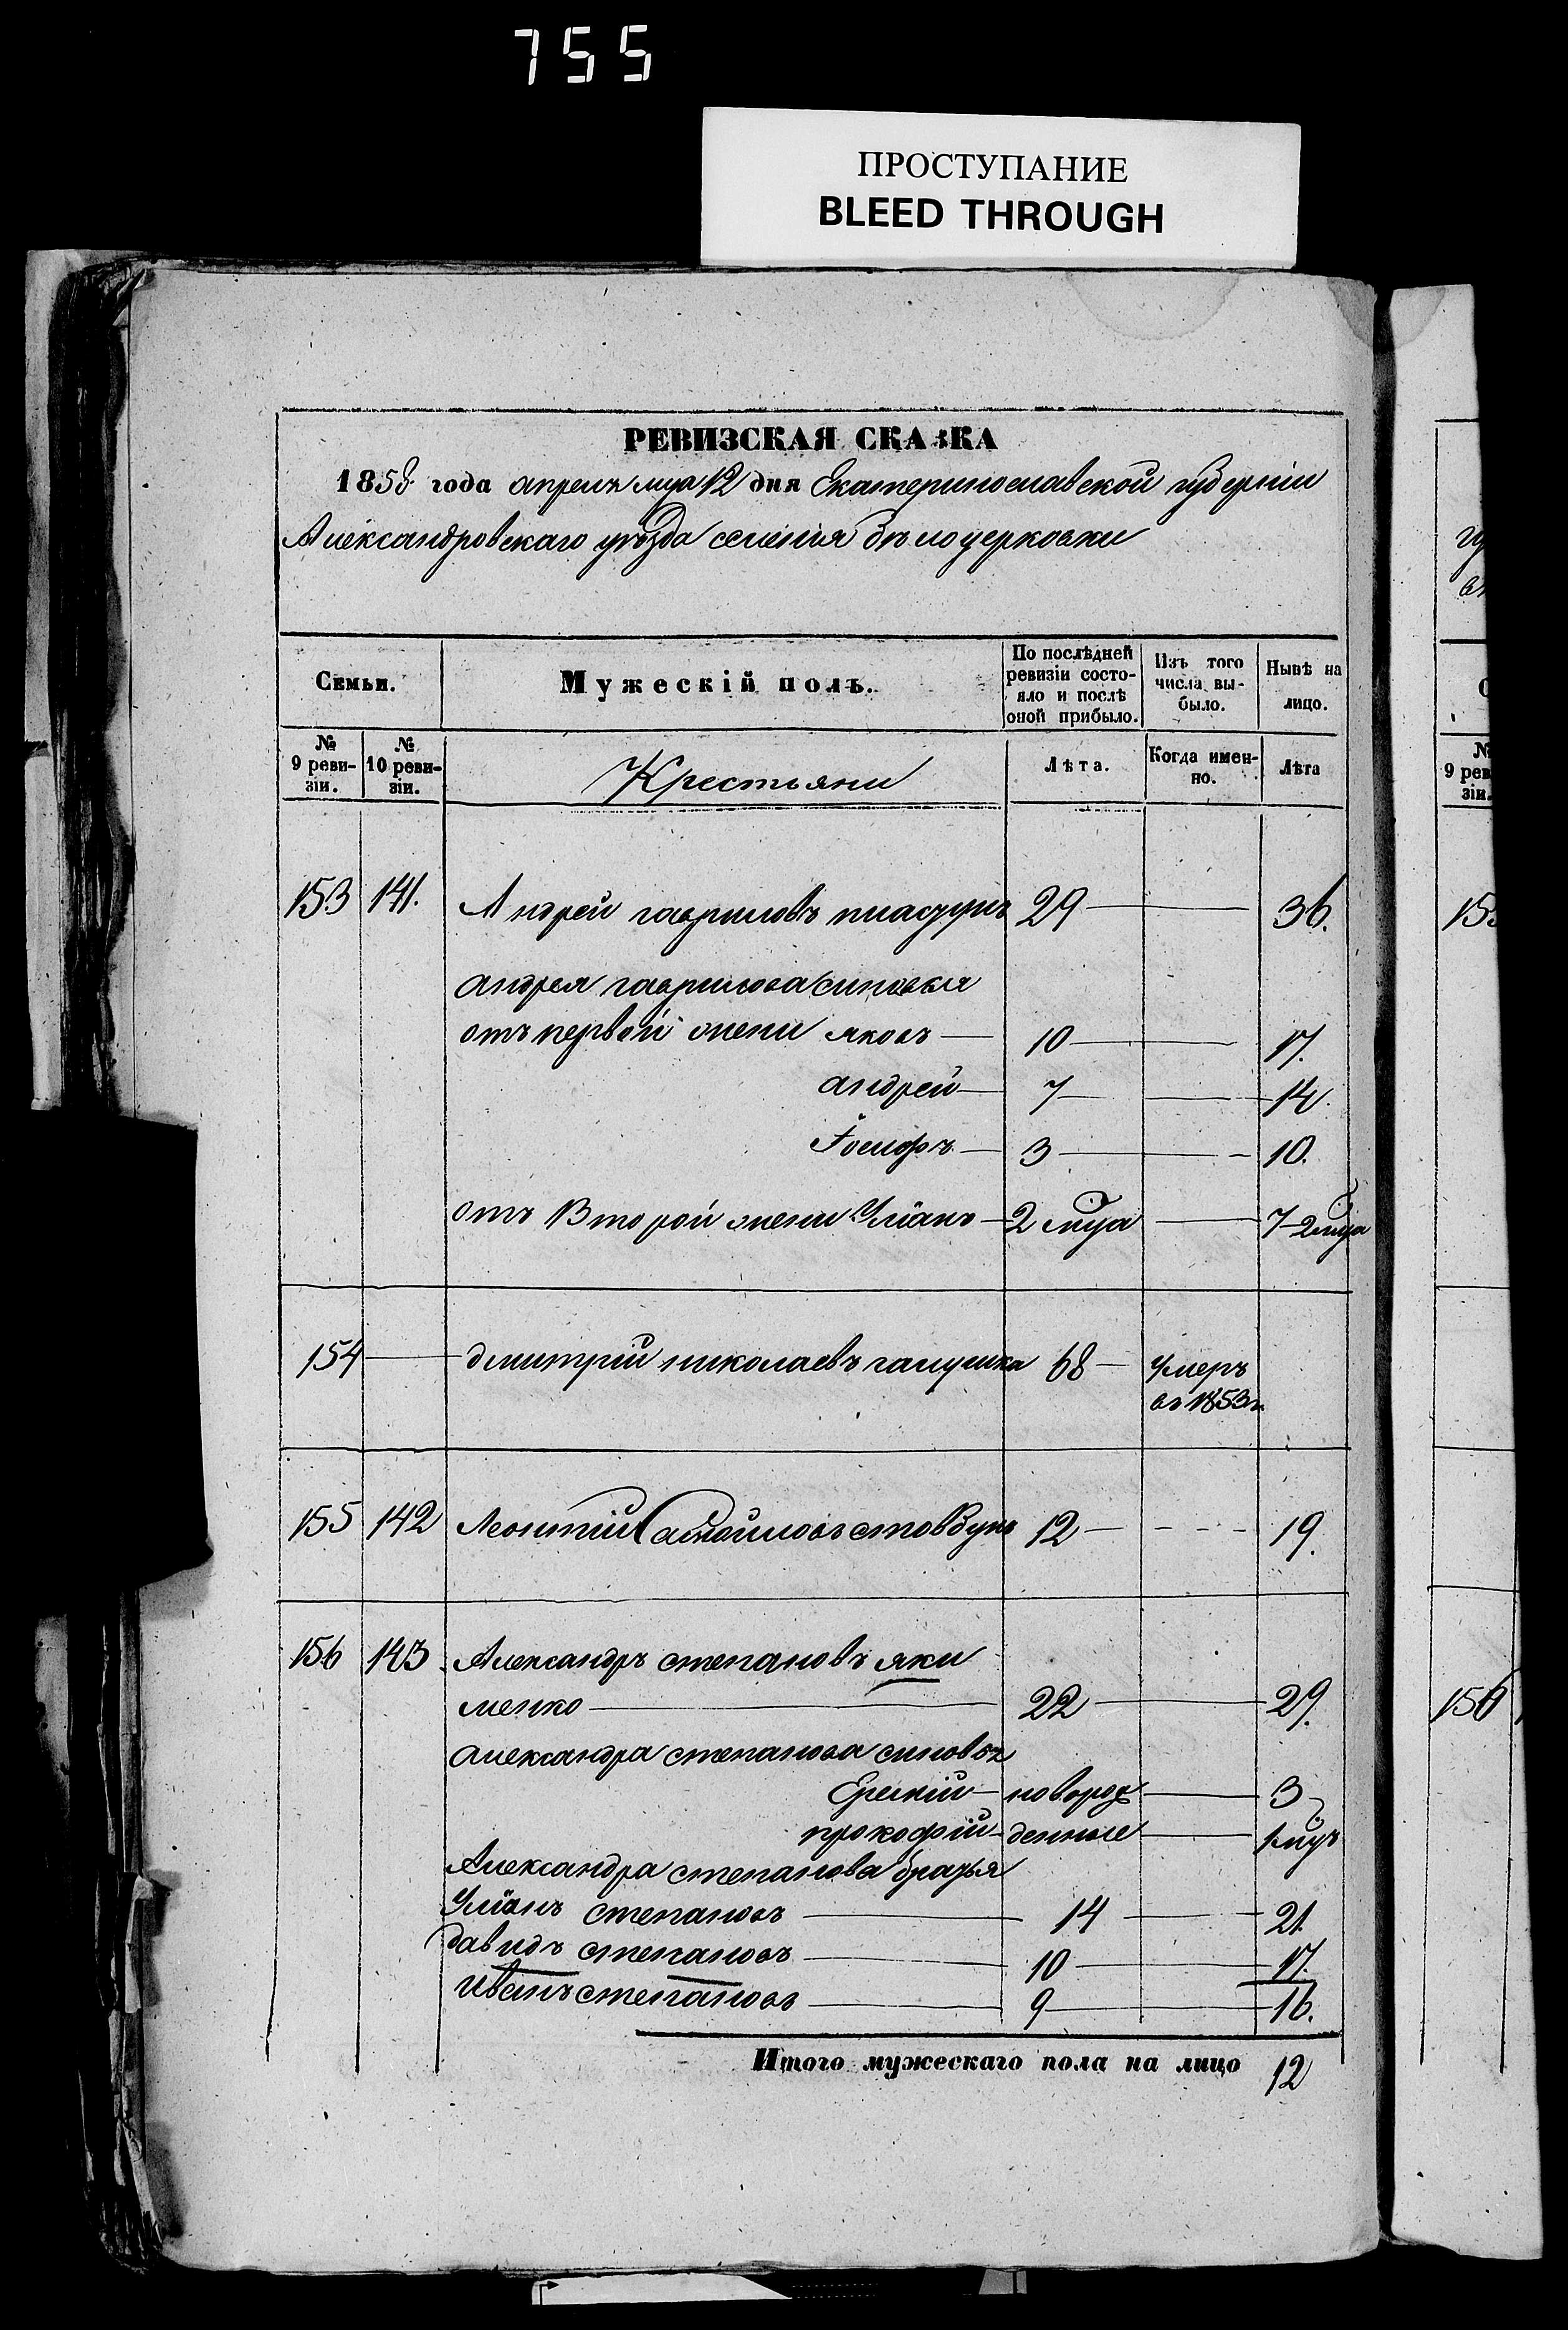 755
ПРОСТУПАНИЕ
BLEED THROUGH
РЕВИЗСКАЯ СКАЗКА
1858 года апреля мца 12 дня Екатеринославской губернiи
Александровскаго уѣзда селенiя бѣлоцерковки
Семьи.
Мужескiй полъ.
По послѣдней ревизiи состо-яло и послѣ оной прибыло.
Изъ того числа вы-было.
Нынѣ на лицо.
№ 9 реви-зiи.
№ 10 реви-зiи.
Крестьяни
Лѣта.
Когда имен-но.
Лѣта
153 141. Андрей гавриловъ пласкунъ 29 36.
андрея гаврилова синовья
отъ первой жени яковъ 10 17.
андрей 7 14.
Iосифъ 3 10.
отъ Второй жени Улiанъ 2 мца 7 2мца
154 дмитрiй николаевъ галушка 68 умеръ
въ 1853г.
155 142 Леонтiй Самойловъ стовбунъ 12 19.
156 143. Александръ степановъ яки
менко 22 29.
александра степанова синовья
Еремiй новорож 3
прокофiй денные 1 мцъ
Александра степанова братья
Улiанъ степановъ 14 21.
давидъ степановъ 10 17.
иванъ степановъ 9 16.
Итого мужескаго пола на лицо 12
№
9 рев
зiи.
156